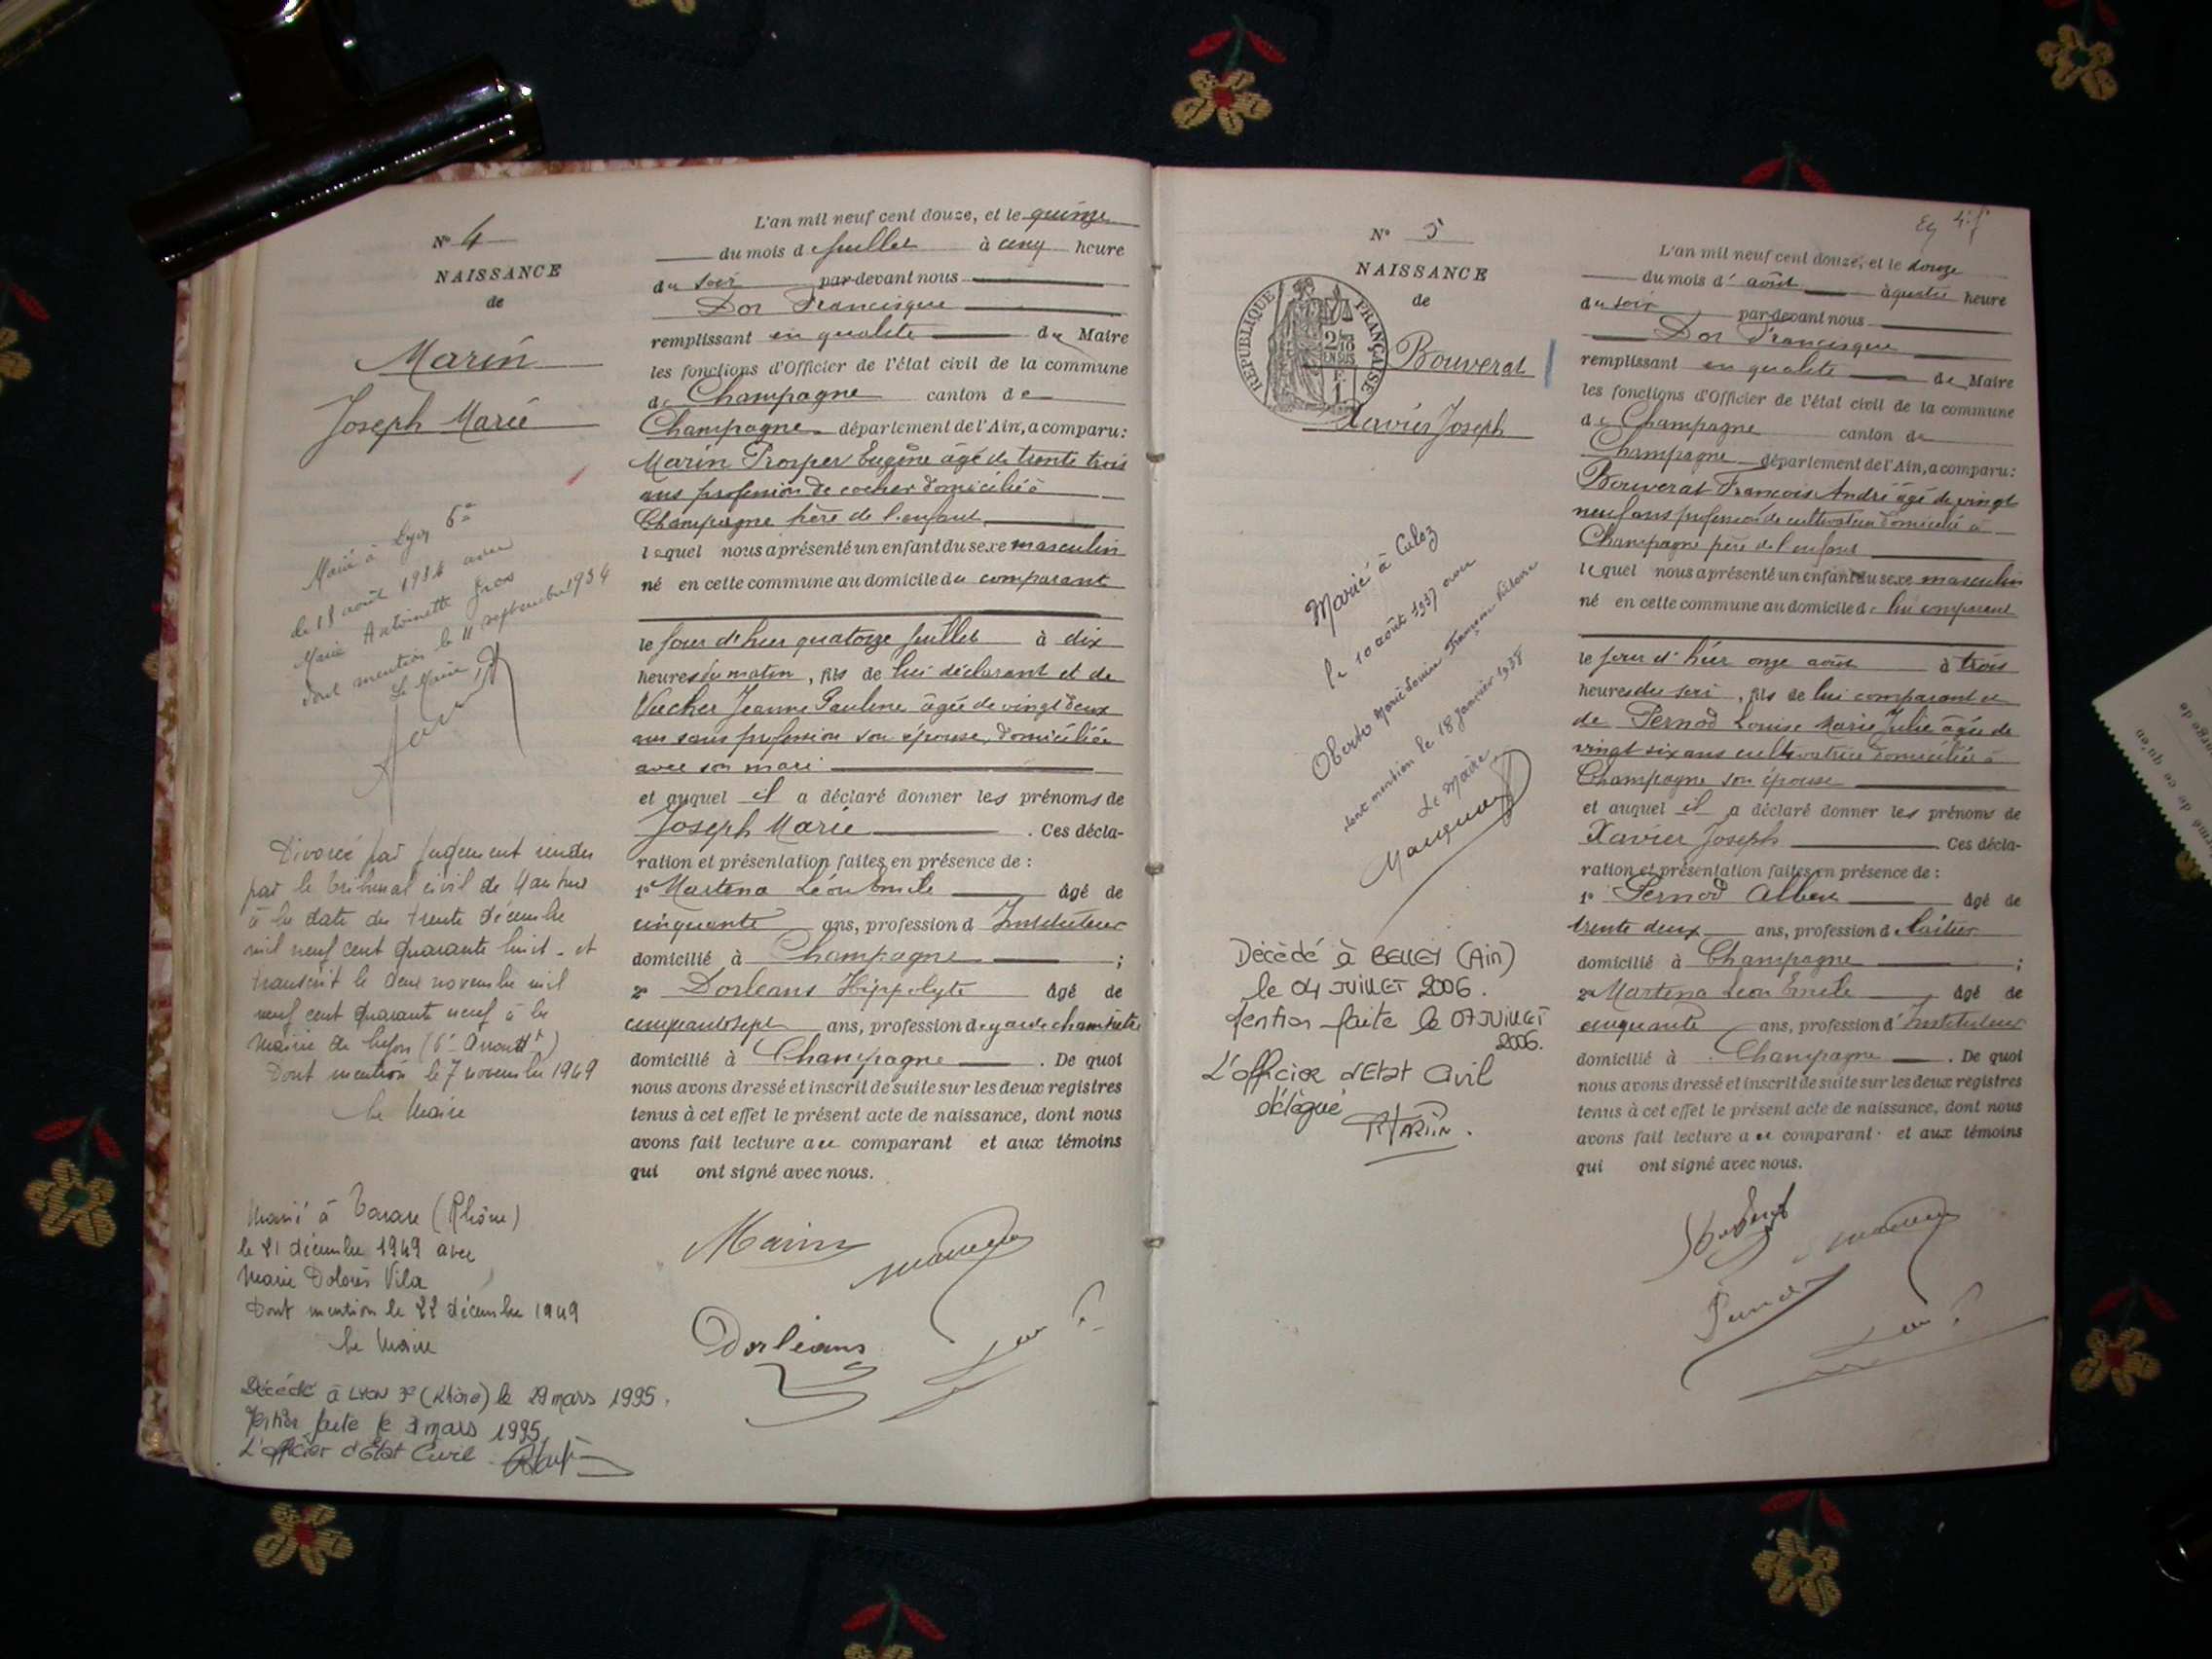 N° 4
NAISSANCE
de
Marin
Joseph Marie
Marié à Lyon 6e
le 18 août 1934 avec
Marie Antoinette
dont mention le 11 septembre 1934
Le Maire,
Divorcé par jugement rendu
par le tribunal civil de
à la date du trente décembre
mil neuf cent quarante huit - et
transcrit le deux novembre mil
neuf cent quarante neuf à la
Mairie de Lyon (6e Arrondt)
Dont mention le 7 novembre 1949
Le Maire
Marié à Tarare (Rhône)
le 21 décembre 1949 avec
Marie Dolorès Vila
Dont mention le 22 décembre 1949
Le Maire
Décédé à LYON 3e (Rhône) le 29 mars 1995.
Mention faite le mars 1995
L'officier d'Etat Civil
L'an mil neuf cent douze, et le quinze
du mois de Juillet à cinq heure
du soir par-devant nous
Dor Francisque
remplissant en qualité de Maire
les fonctions d'Officier de l'état civil de la commune
de Champagne canton de
Champagne département de l'Ain, a comparu :
Marin Prosper Eugène âgé de trente trois
ans profession de cocher domicilié à
Champagne père de l'enfant
lequel nous a présenté un enfant du sexe masculin
né en cette commune au domicile du comparant
le jour d'hier quatorze Juillet à dix
heures du matin, fils de lui déclarant et de
Vucher Jeanne Pauline âgée de vingt deux
ans sans profession son épouse, domiciliée
avec son mari
et auquel il a déclaré donner les prénoms de
Joseph Marie . Ces décla-
ration et présentation faites en présence de :
1° Martena Léon Emile âgé de
cinquante ans, profession d Instituteur
domicilié à Champagne ;
2° Dorleans Hippolyte âgé de
cinquante sept ans, profession de garde champêtre
domicilié à Champagne . De quoi
nous avons dressé et inscrit de suite sur les deux registres
tenus à cet effet le présent acte de naissance, dont nous
avons fait lecture au comparant et aux témoins
qui ont signé avec nous.
Marin
Dorléans
N° 5
NAISSANCE
de
RÉPUBLIQUE FRANÇAISE
2/10
EN SUS
Bouverat
Xavier Joseph
Marié à Culoz
le 10 août 1937 avec
Oberto Marie Louise Françoise
dont mention le 18 Janvier 1938
Le Maire
Décédé à BELLEY (Ain)
le 04 JUILLET 2006.
Mention faite le 07 JUILLET
2006.
L'officier d'Etat Civil
délégué
L'an mil neuf cent douze, et le douze
du mois d' août à quatre heure
du soir par-devant nous
Dor Francisque
remplissant en qualité de Maire
les fonctions d'Officier de l'état civil de la commune
de Champagne canton de
Champagne département de l'Ain, a comparu :
Bouverat François André âgé de vingt
neuf ans profession de cultivateur domicilié à
Champagne père de l'enfant
lequel nous a présenté un enfant du sexe masculin
né en cette commune au domicile de lui comparant
le jour d'hier onze août à trois
heures du soir, fils de lui comparant et
de Pernod Louise Marie Julie âgée de
vingt six ans cultivatrice domiciliée à
Champagne son épouse
et auquel il a déclaré donner les prénoms de
Xavier Joseph . Ces décla-
ration et présentation faites en présence de :
1° Pernod Albert âgé de
trente deux ans, profession d laitier
domicilié à Champagne ;
2° Martena Léon Emile âgé de
cinquante ans, profession d'Instituteur
domicilié à Champagne . De quoi
nous avons dressé et inscrit de suite sur les deux registres
tenus à cet effet le présent acte de naissance, dont nous
avons fait lecture au comparant et aux témoins
qui ont signé avec nous.